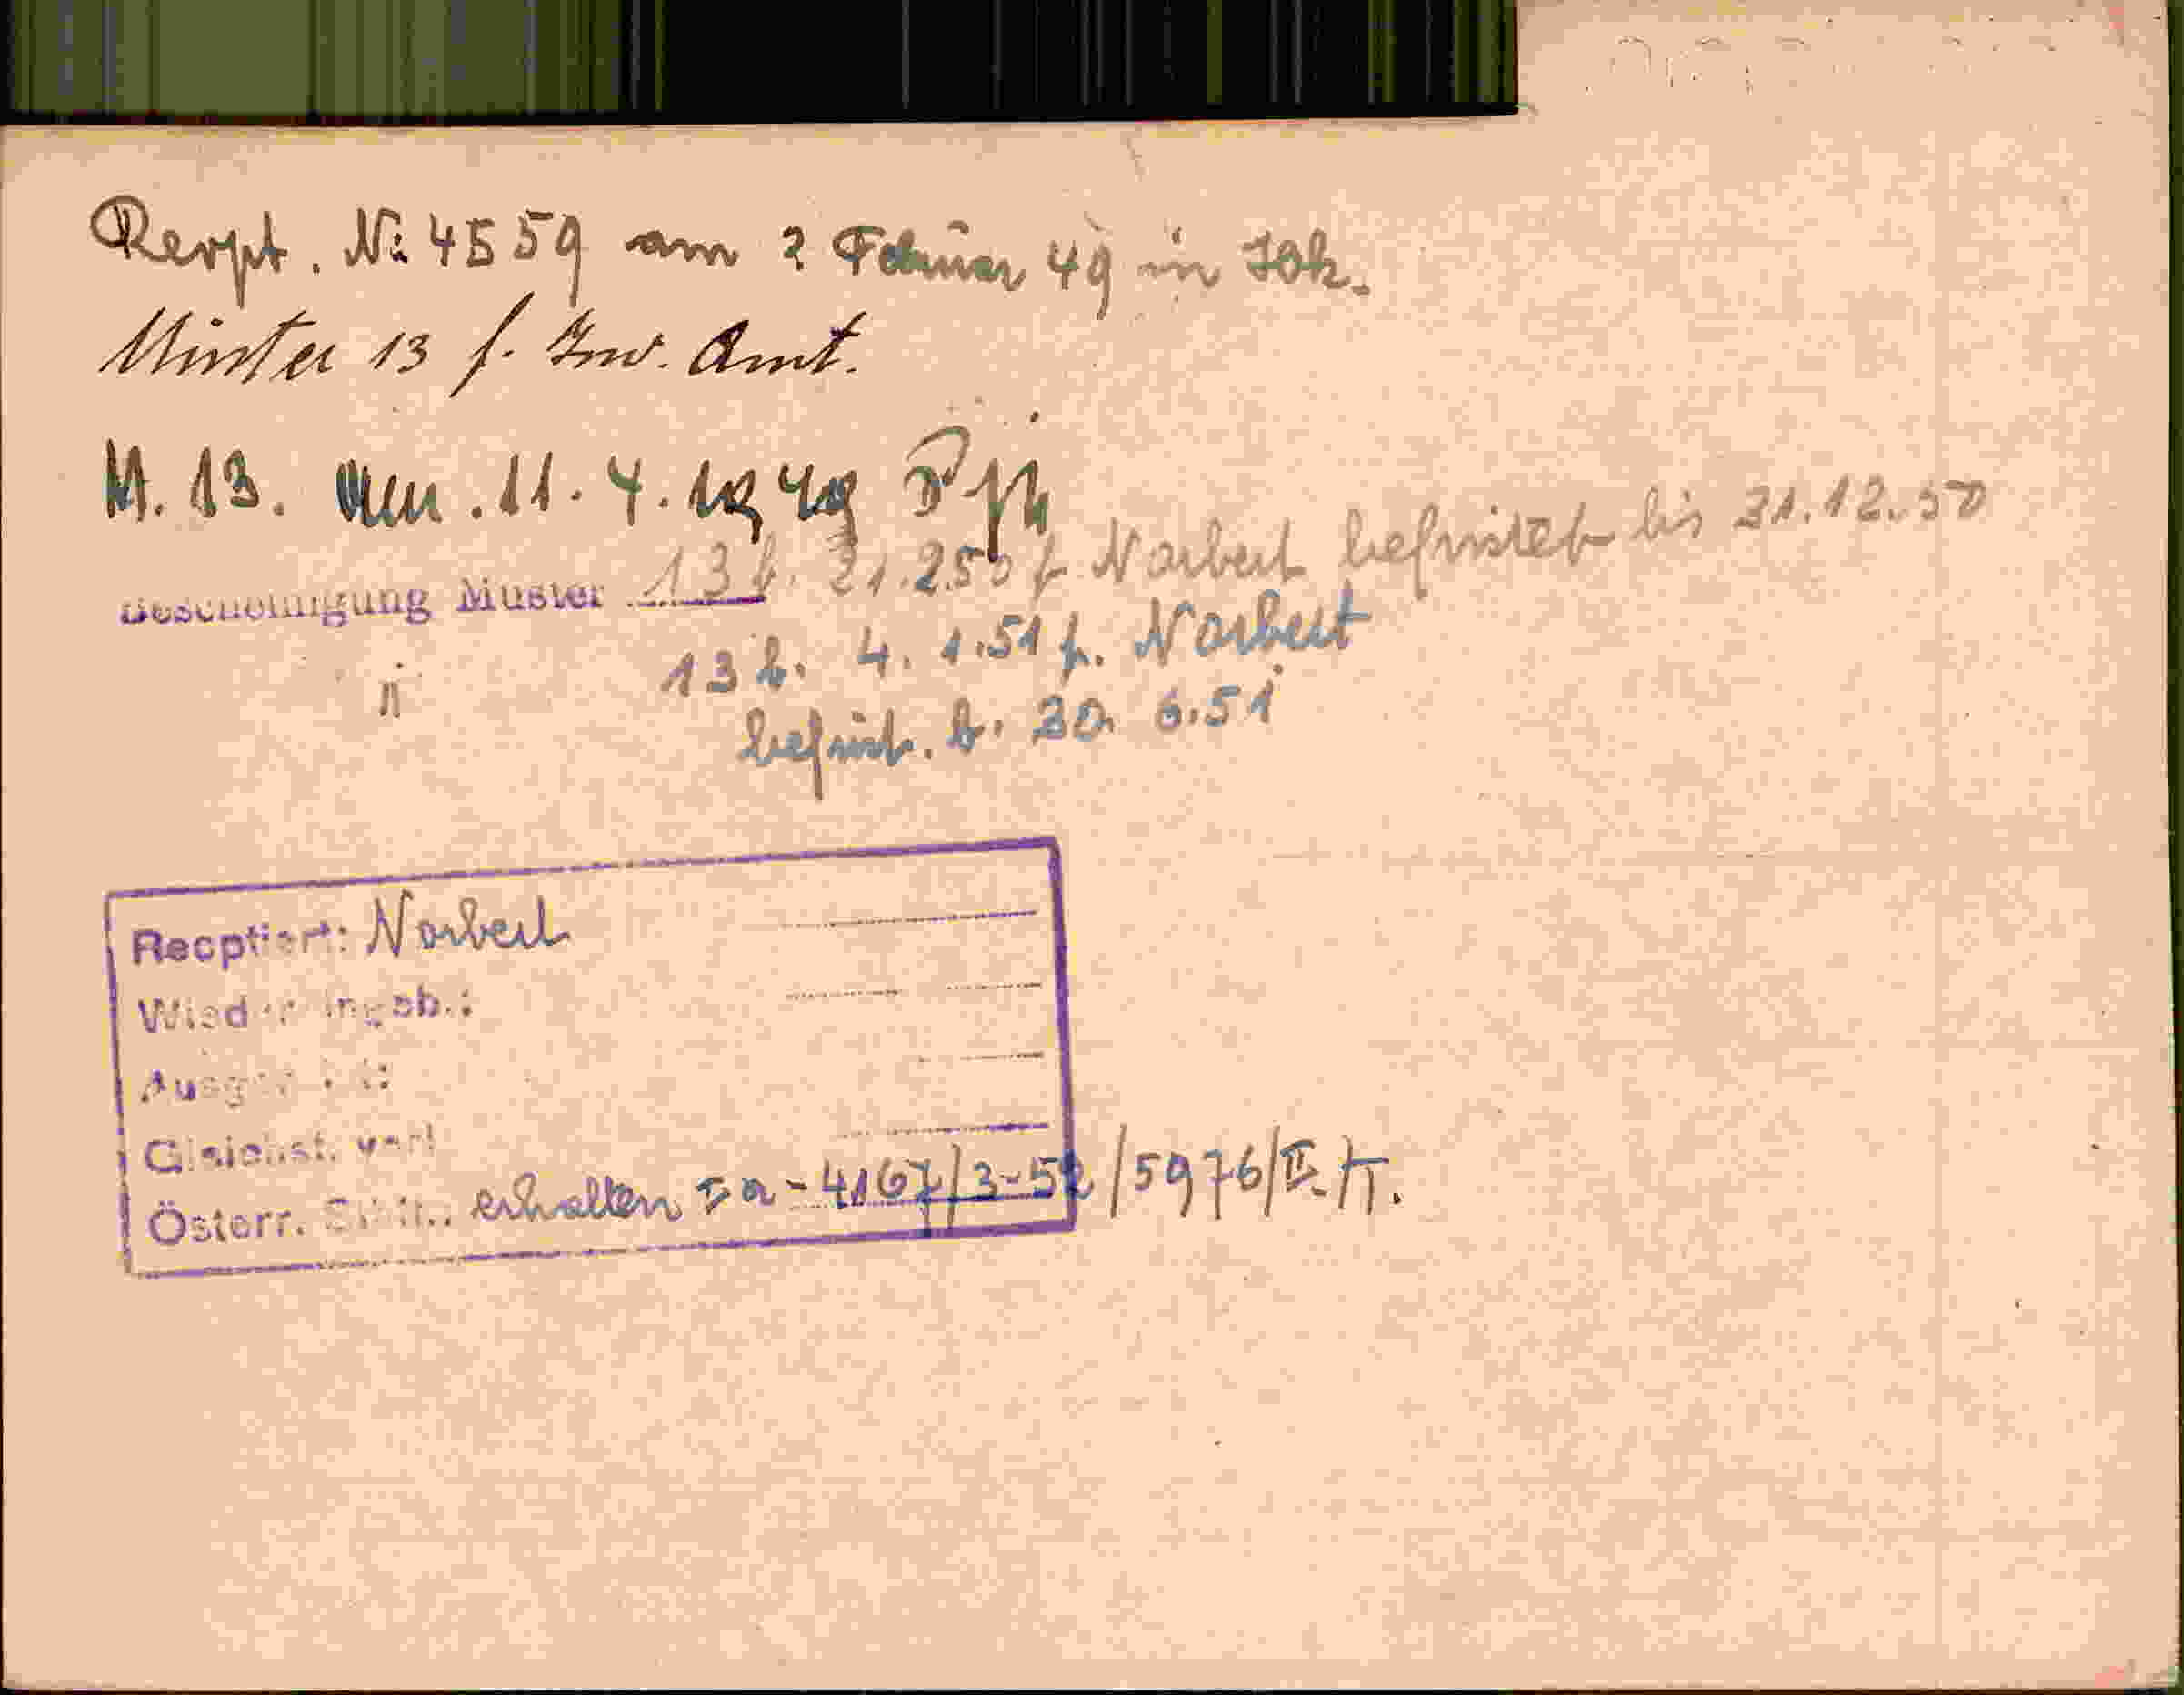 Rerpt. No 4559 am 2 Februar 49 in Jok.
Muster 13 f. Inv. Amt.
M. 13. vom 11. 4. 1949
Bescheinigung Muster 13 f. 21.2.50 f. Norbert befristet bis 31.12.50
13 b. 4. 1.51 f. Norbert
befrist. b. 30. 6.51
Recptiert: Norbert
Wiedereingeb.:
Gleichst. verl
Österr. erhalten Ia-4167/3-52/5976/II.